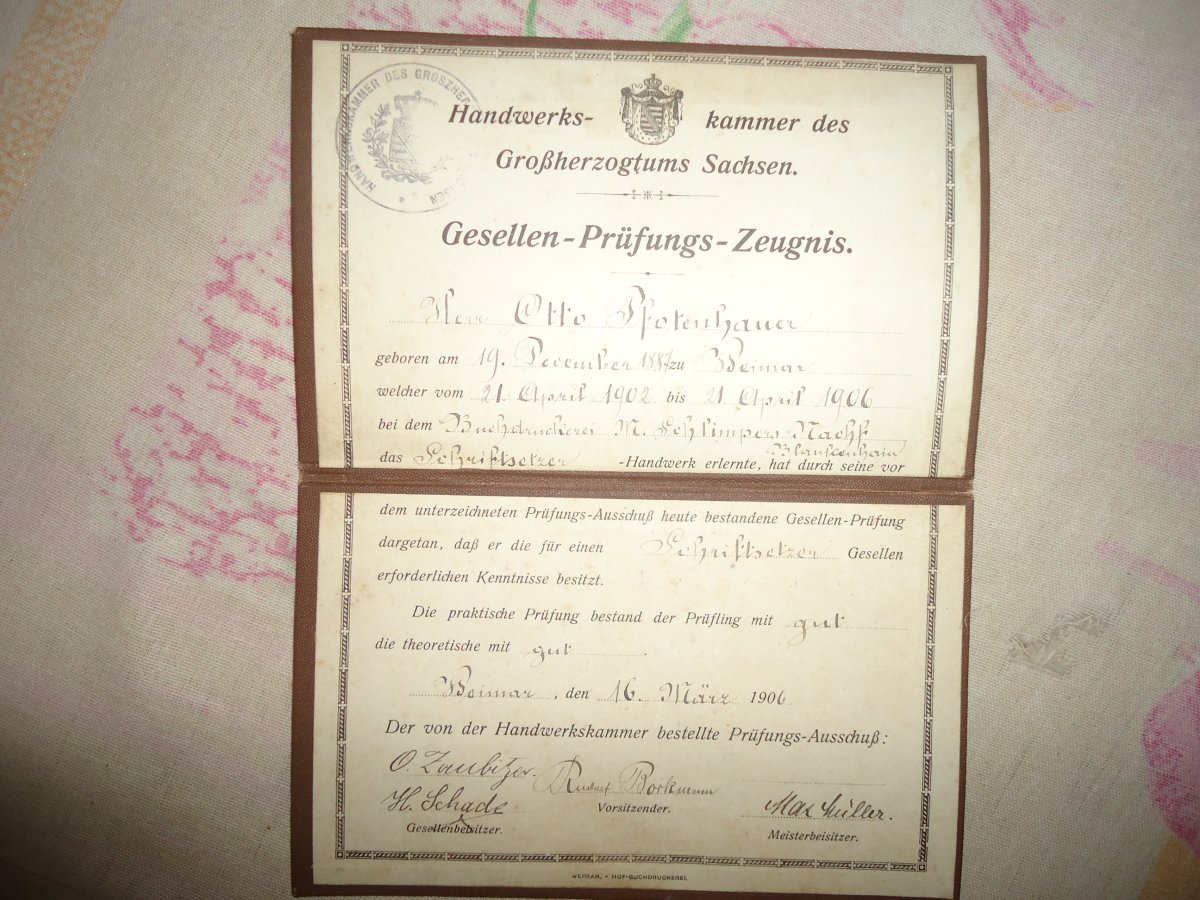 HANDWERKSKAMMER DES GROSZHER
SEN *
Handwerks- kammer des
Großherzogtums Sachsen.
Gesellen-Prüfungs-Zeugnis.
Herr Otto Pfotenhauer
geboren am 19. December 1887 zu Weimar
welcher vom 21. April 1902 bis 21. April 1906
bei dem Buchdruckerei M. Schlimpers Nachf.
Blankenhain
das Schriftsetzer -Handwerk erlernte, hat durch seine vor
dem unterzeichneten Prüfungs-Ausschuß heute bestandene Gesellen-Prüfung
dargetan, daß er die für einen Schriftsetzer Gesellen
erforderlichen Kenntnisse besitzt.
Die praktische Prüfung bestand der Prüfling mit gut
die theoretische mit gut .
Weimar, den 16. März 1906
Der von der Handwerkskammer bestellte Prüfungs-Ausschuß:
O. Zaubitzer. Rudolf Borkmann
H. Schade Vorsitzender. Max Müller.
Gesellenbeisitzer. Meisterbeisitzer.
WEIMAR. - HOF-BUCHDRUCKEREI.